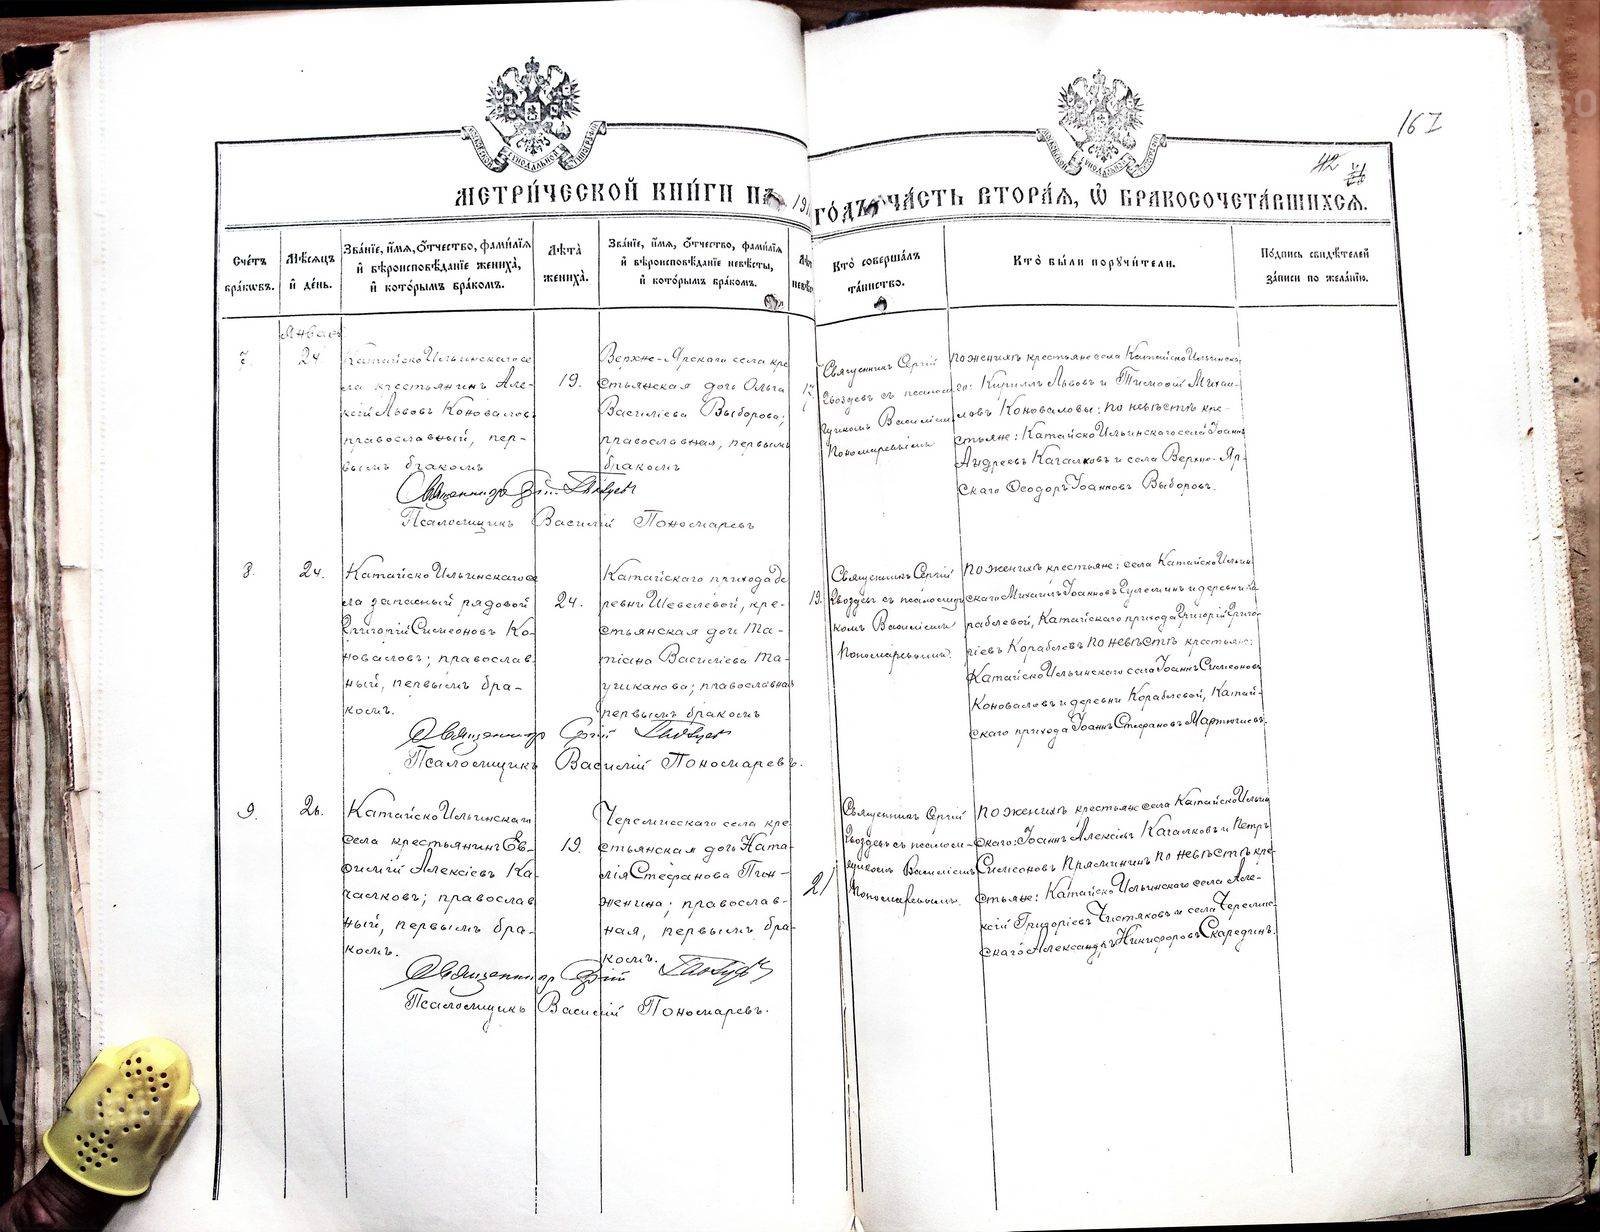 167
42
МЕТРИ́ЧЕСКОЙ КНИ́ГИ НА 191 ГО́ДЪ ЧА́СТЬ ВТОРА́Я, Ѽ БРАКОСОЧЕТА́ВШИХСЯ.
Сче́тъ бра́кѡвъ.
Мѣ́сяцъ и де́нь.
Зва́нїе, и́мя, о́тчество, фами́лїя и вѣроисповѣ́данїе жениха̀, и кото́рымъ бра́комъ.
Лѣ́та жениха̀.
Зва́нїе, и́мя, о́тчество, фами́лїя и вѣроисповѣ́данїе невѣ́сты, и кото́рымъ бра́комъ.
Кто̀ соверша́лъ та́инство.
Кто̀ бы́ли поручи́тели.
По́дпись свидѣ́телей за́писи по жела́нїю.
Январь
7.
24
Катайско Ильинскаго се
ла крестьянинъ Але-
ксій Львовъ Коноваловъ
православный, пер-
вымъ бракомъ
19.
Верхне-Ярскаго села кре
стьянская дочь Ольга
Василіева Выборова,
православная, первымъ
бракомъ
17
Священникъ Сергій
Гвоздевъ съ псалом-
щикомъ Василіем
Пономаревымъ
по женихѣ крестьяне села Катайско Ильинска
го: Кириллъ Львовъ и Тимофій Михаи-
ловъ Коноваловы; по невѣстѣ кре-
стьяне: Катайско Ильинскаго села Іоаннъ
Андреевъ Качалковъ и села Верхне-Яр-
скаго Ѳеодоръ Іоанновъ Выборовъ.
Священникъ Сергій Гвоздевъ
Псаломщикъ Василій Пономаревъ
8.
24.
Катайско Ильинскаго се
ла запасный рядовой
Григорій Симеоновъ Ко-
новаловъ; православ
ный, первымъ бра-
комъ.
24.
Катайскаго прихода де
ревни Шевелевой, кре-
стьянская дочь Та-
тіана Василіева Та-
ушканова; православная
первымъ бракомъ
19.
Священникъ Сергій
Гвоздевъ съ псаломщи
комъ Василіемъ
Пономаревымъ.
по женихѣ крестьяне: села Катайско Ильин
скаго Михаилъ Іоанновъ Гулеминъ и деревни Ко
раблевой, Катайскаго прихода Григорій Григо-
ріевъ Кораблевъ по невѣстѣ крестьяне:
Катайско Ильинскаго села Іоаннъ Симеоновъ
Коноваловъ и деревни Кораблевой, Катай-
скаго прихода Іоаннъ Стефановъ Мартюшевъ.
Священникъ Сергій Гвоздевъ
Псаломщикъ Василій Пономаревъ.
9.
26.
Катайско Ильинскаго
села крестьянинъ Ев-
фимій Алексіевъ Ка-
чалковъ; православ
ный, первымъ бра-
комъ.
19.
Черемисскаго села кре
стьянская дочь Ната-
лія Стефанова
женина; православ-
ная, первымъ бра-
комъ.
21
Священникъ Сергій
Гвоздевъ съ псалом-
щикомъ Василіемъ
Пономаревымъ.
по женихѣ крестьяне села Катайско Ильин
скаго: Іоаннъ Алексіевъ Качалковъ и Петръ
Симеоновъ Пряминъ по невѣстѣ кре-
стьяне: Катайско Ильинскаго села Але-
ксій Григоріевъ Чистяковъ и села Черемис-
скаго Александръ Никифоровъ Скарединъ.
Священникъ Сергій Гвоздевъ
Псаломщикъ Василій Пономаревъ.